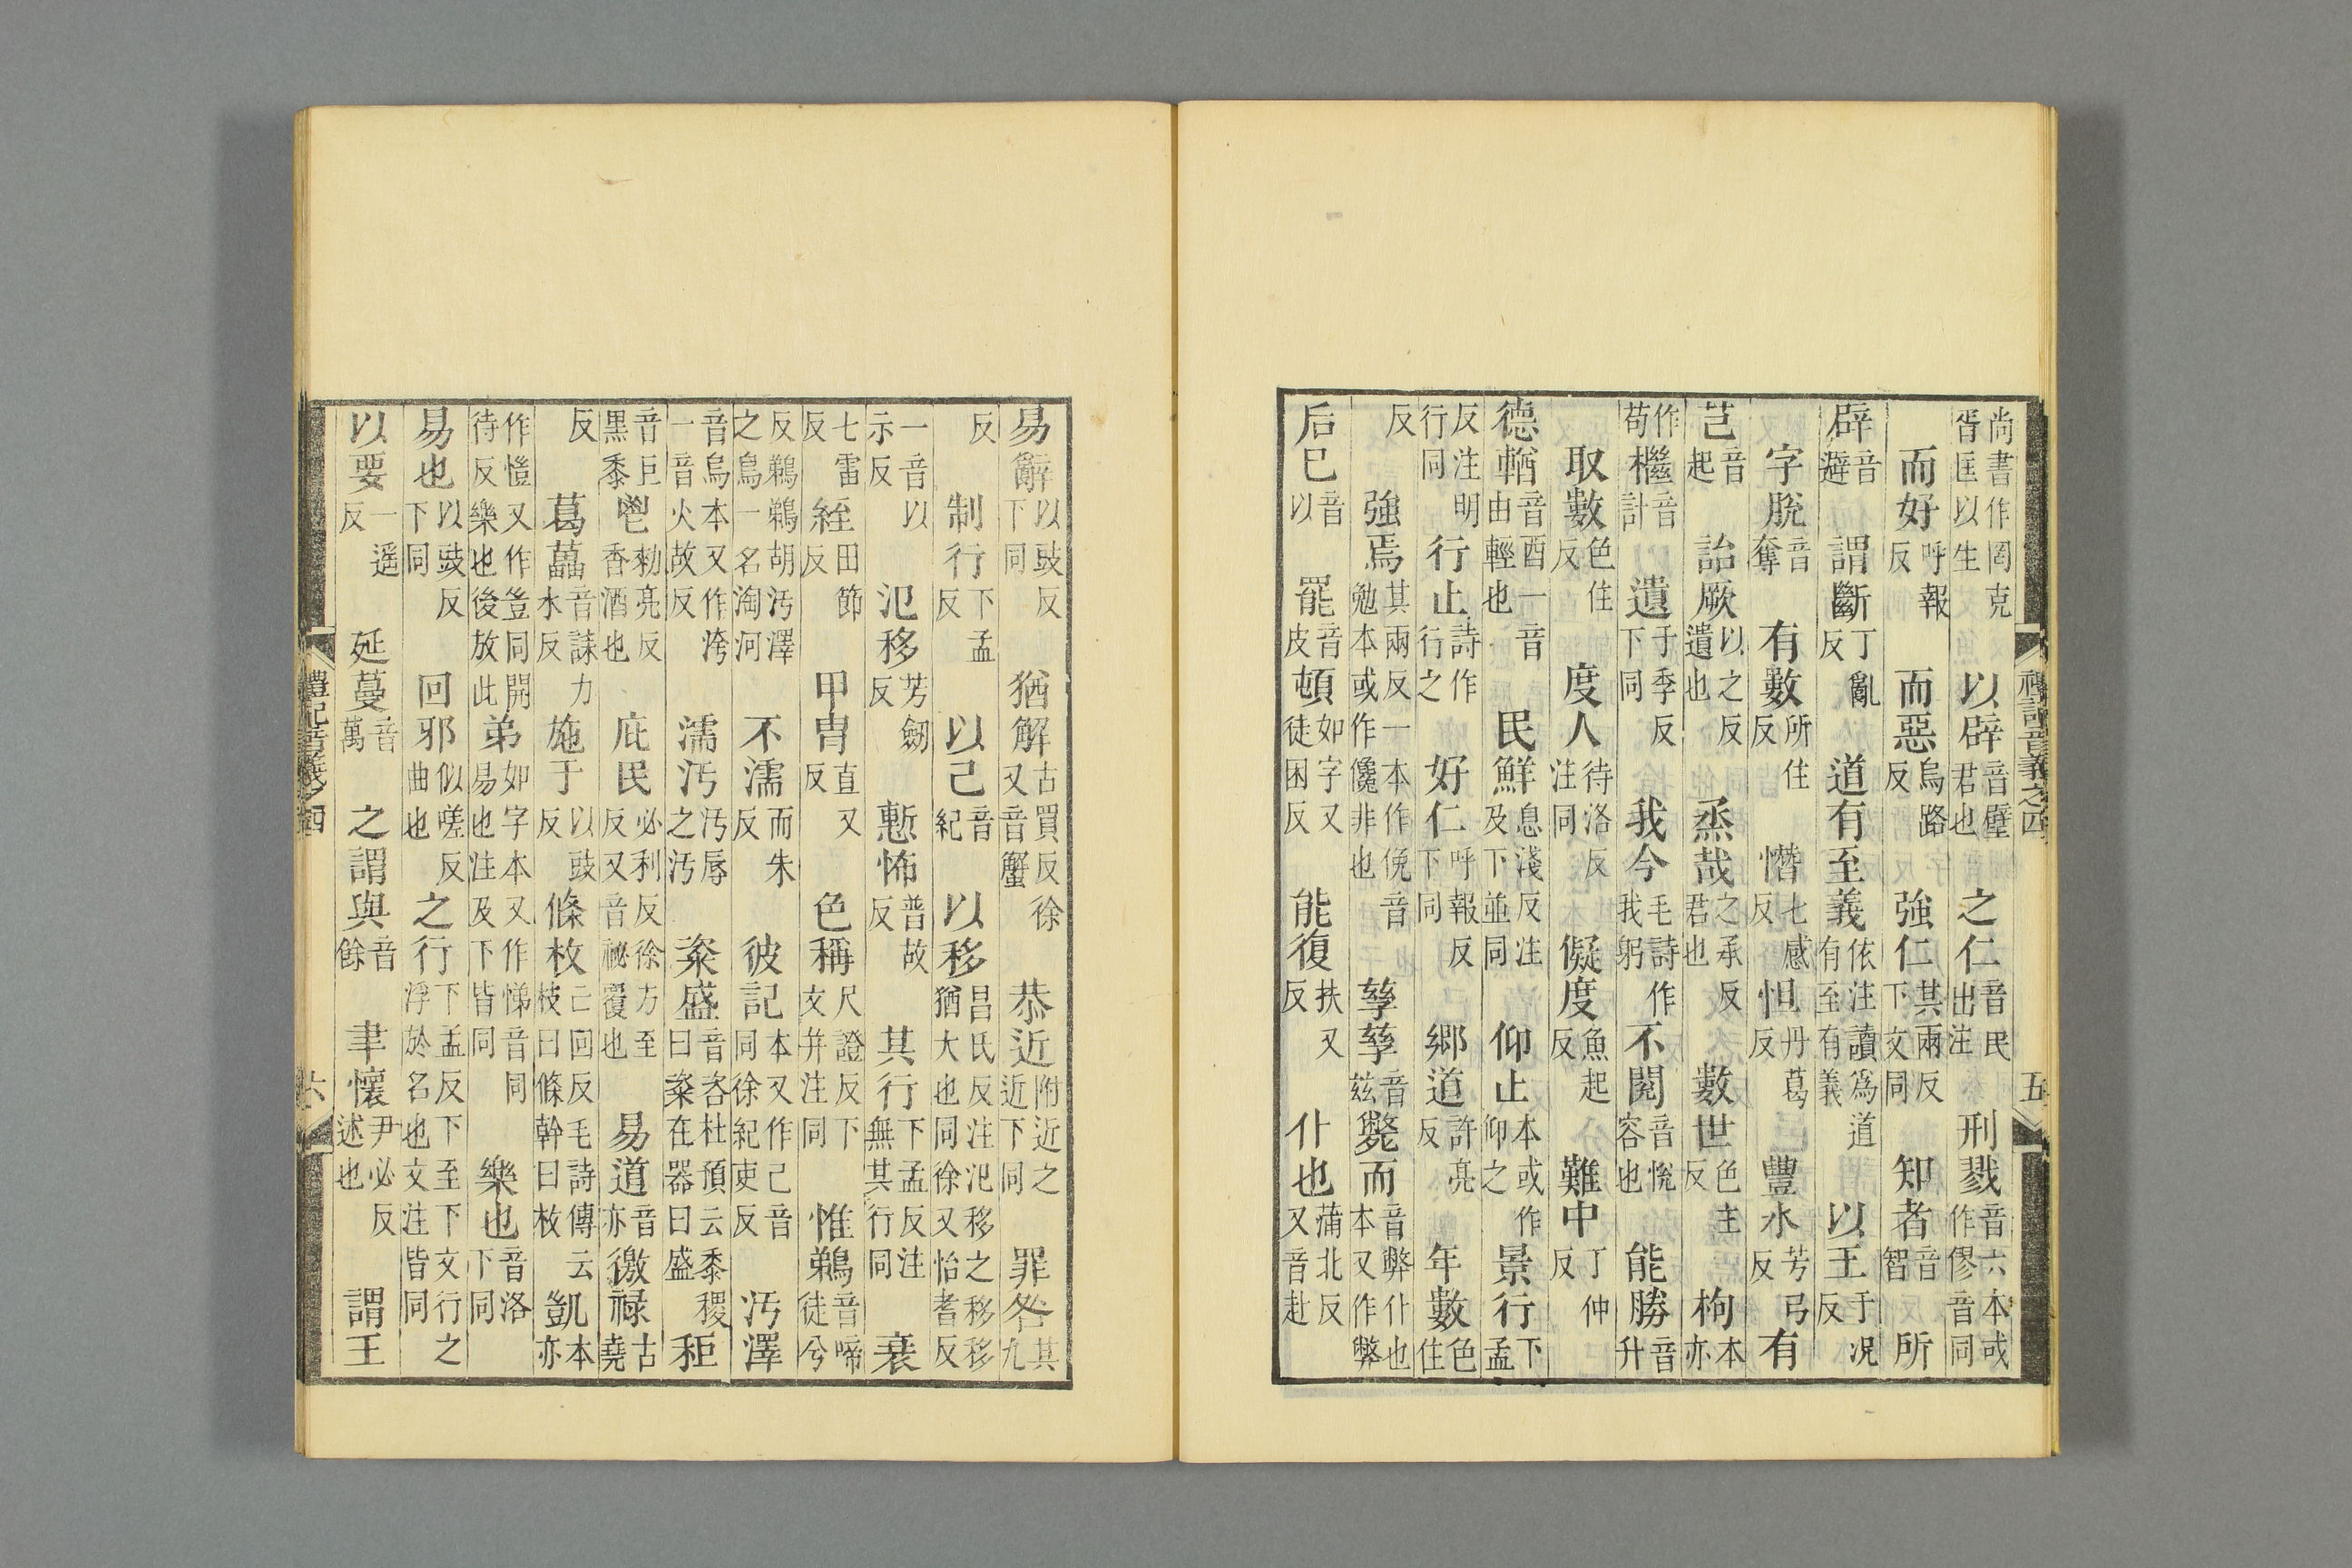 尚書作罔克胥匡以生以辟音壁君也之仁音民出注刑戮音六本或作僇音同
而好呼報反而惡烏路反強仁其兩反下文同知者音智所
辟音避謂斷丁亂反道有至義依注讀爲道有至有義以王于況反
字脫音奪有數所住反憯七感反怛丹葛反豐水芳弓反有
芑音起詒厥以之反遺也烝哉之承反君也數世色主反枸本亦
作苟檵音計遺于季反下同我今毛詩作我躬不閱音悅容也能勝音升
取數色住反度人待洛反注同儗度魚起反難中丁仲反
德輶音酉一音由輕也民鮮息淺反注及下並同仰止本或作仰之景行下孟
反注明行同行止詩作行之好仁呼報反下同鄉道許亮反年數色住
反強焉其兩反一本作俛音勉本或作儳非也孳孳音茲斃而音弊仆也本又作弊
后已音以罷音皮頓如字又徒困反能復扶又反仆也蒲北反又音赴
易辭以豉反下同猶解古買反徐又音蟹恭近附近之近下同罪咎其九
反制行下孟反以己音紀以移昌氏反注氾移之移移猶大也同徐又怡耆反
一音以示反氾移芳劒反慙怖普故反其行下孟反注無其行同衰
七雷反絰田節反甲冑直又反色稱尺證反下文并注同惟鵜音啼徒兮
反鵜鵜胡汚澤之鳥一名淘河不濡而朱反彼記本又作己音同徐紀吏反汚澤
音烏本又作洿一音火故反濡汚汚辱之汚粢盛音咨杜預云黍稷曰粢在器曰盛秬
音巨黑黍鬯勑亮反香酒也庇民必利反徐方至反又音祕覆也易道音亦徼祿古堯
反葛藟音誄力水反施于以豉反條枚亡回反毛詩傳云枝曰條幹曰枚凱本亦
作愷又作豈同開待反樂也後放此弟如字本又作悌音同易也注及下皆同樂也音洛下同
易也以豉反下同回邪似嗟反曲也之行下孟反下至下文行之浮於名也文注皆同
以要一遥反延蔓音萬之謂與音餘聿懷尹必反述也謂王
禮記音義之四
五
禮記音義之四
六